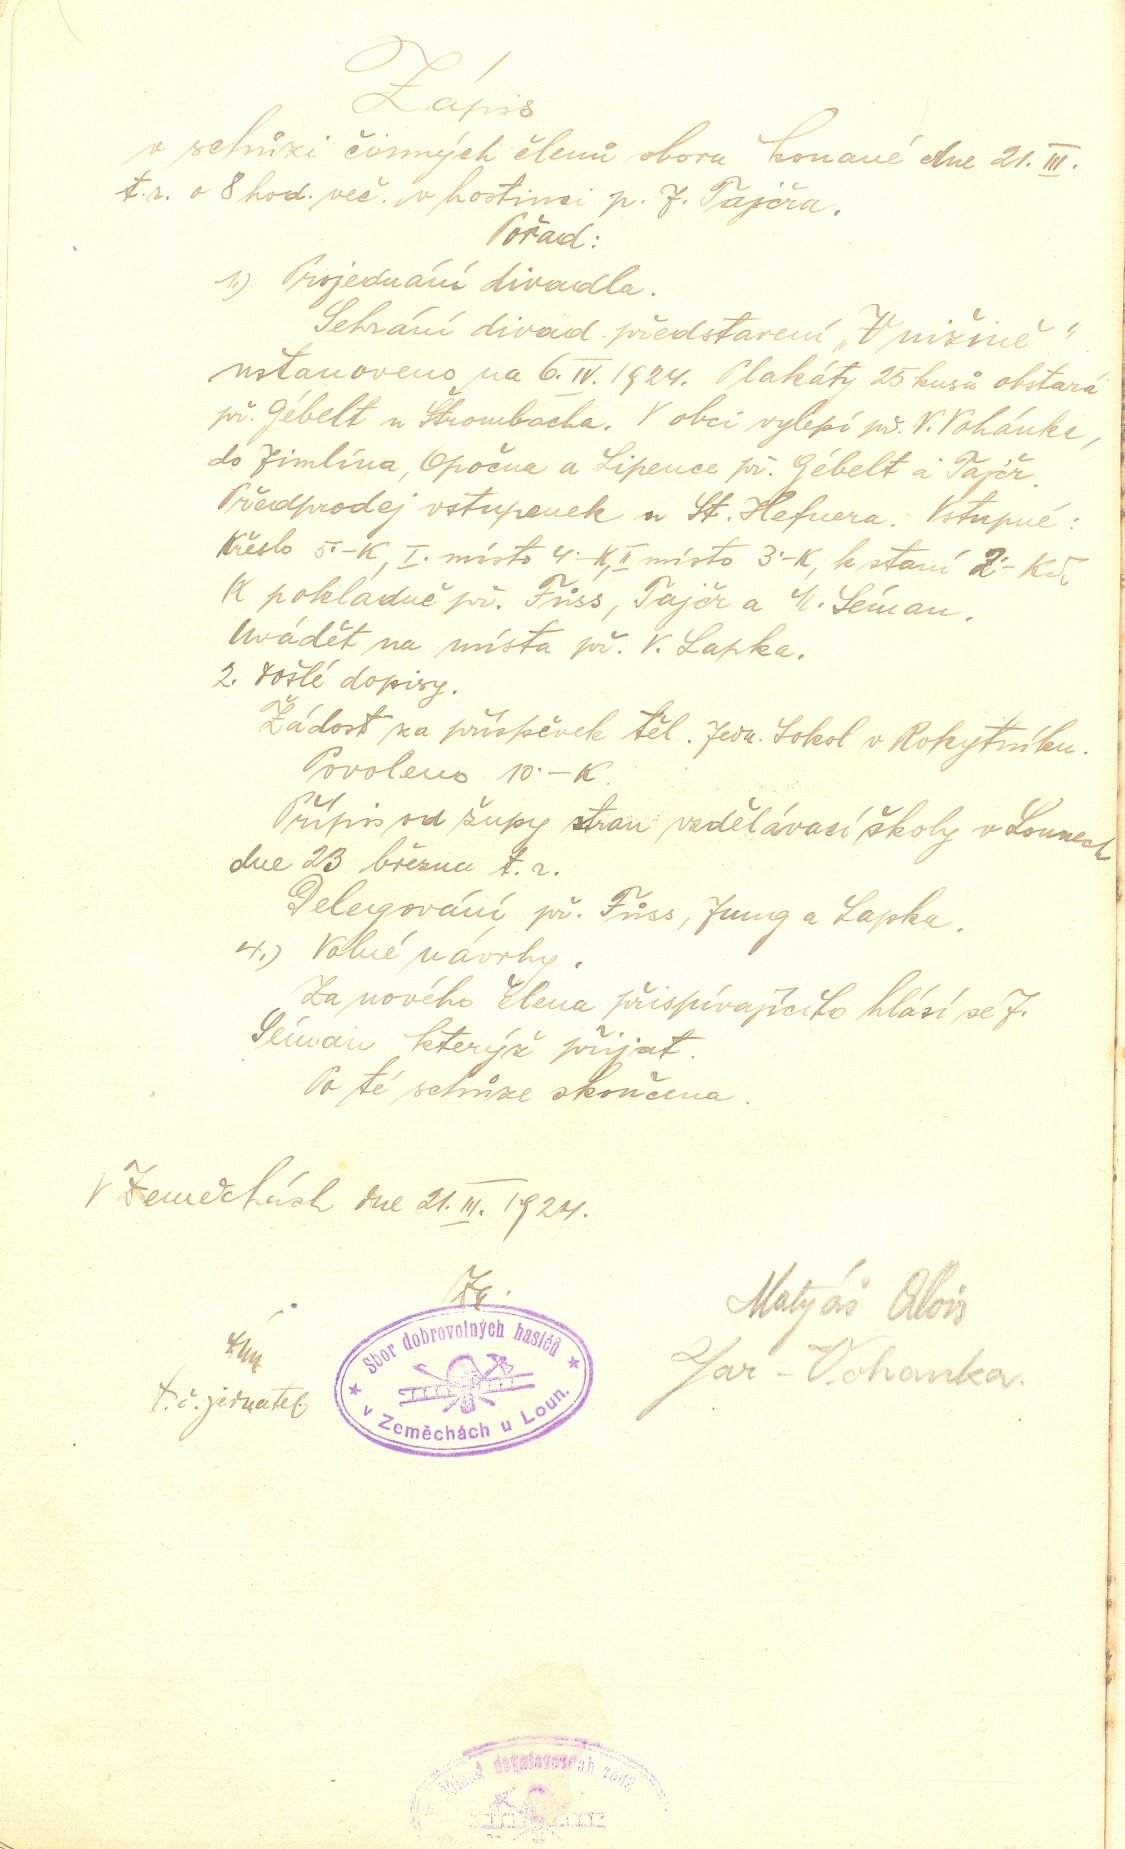 Zápis
o schůzi činných členů sboru konané dne 21. III.
t. r. o 8 hod. več. v hostinci p. J. Tajčra.
Pořad:
1.) Projednání divadla.
Sehrání divad. představení „V nížině“
ustanoveno na 6. IV. 1924. Plakáty 25 kusů obstará
př. Gébelt u Štrombacha. V obci vylepí př. V. Vohánka,
do Jimlína, Opočna a Lipence př. Gébelt a Tajčr.
Předprodej vstupenek u St. Hefnera. Vstupné:
Křeslo 5·-K, I. místo 4·-K, II místo 3·-K, k staní 2·- Kč
K pokladně př. Füss, Tajčr a Séman.
Uvádět na místa př. V. Lapka.
2. došlé dopisy.
Žádost za příspěvek těl. Jedn. Sokol v Rokytníku.
Povoleno 10·-K.
Přípis od župy stran vzdělávací školy v Lounech
dne 23 března t. r.
Delegování př. Füss, Jung a Lapka.
4.) Volné návrhy.
Za nového člena přispívajícíto hlásí se J.
Séman kterýž přijat.
Po té schůze skončena.
V Zeměchách dne 21. III. 1924.
Matyáš Alois
Jar - Vohanka.
t. č. jednatel.
Sbor dobrovolných hasičů
v Zeměchách u Loun.